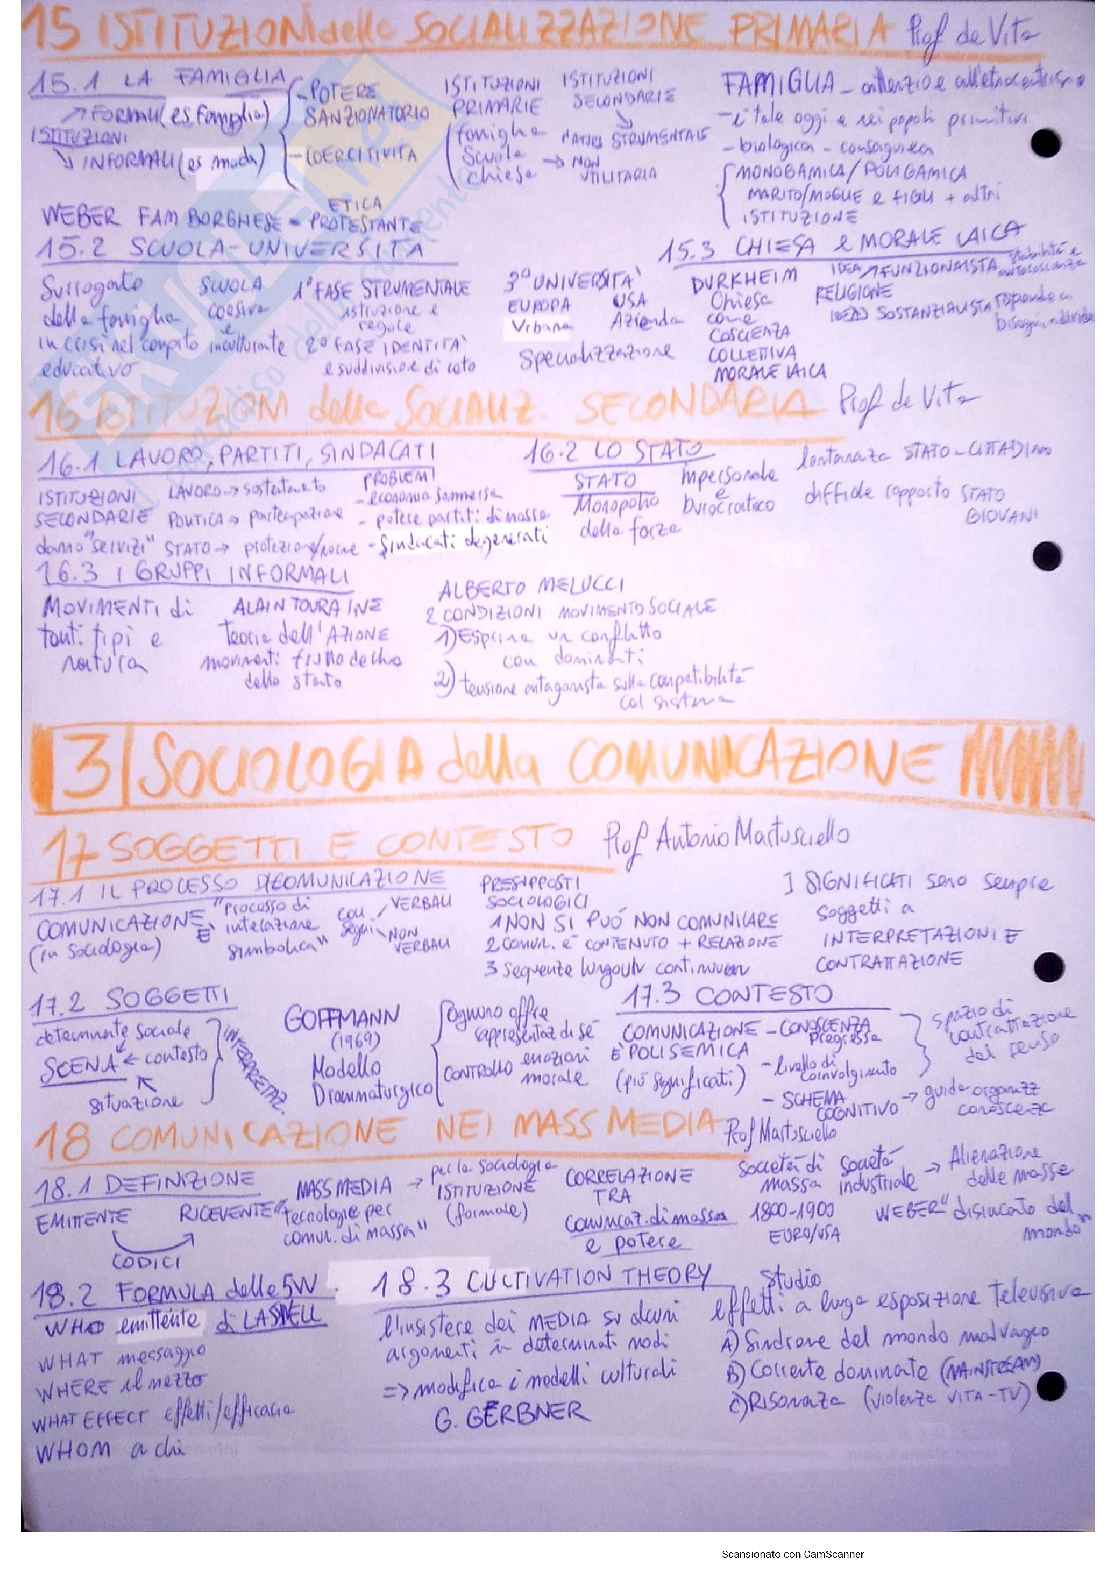 15 ISTITUZIONI delle SOCIALIZZAZIONE PRIMARIA Prof de Vita
15.1 LA FAMIGLIA
ISTITUZIONI
FORMALI (es famiglia)
INFORMALI (es moda)
- POTERE SANZIONATORIO
- COERCITIVITA
ISTITUZIONI PRIMARIE
famiglia
Scuola
chiesa
ISTITUZIONI SECONDARIE
STRUMENTALE
NON UTILITARIA
FAMIGLIA - attenzione all'etnocentrismo
- è tale oggi e nei popoli primitivi
- biologica - consanguinea
MONOGAMICA/POLIGAMICA
MARITO/MOGLIE e FIGLI + altri
ISTITUZIONE
WEBER FAM BORGHESE = ETICA PROTESTANTE
15.2 SCUOLA-UNIVERSITÀ
Surrogato
della famiglia
in crisi nel compito
educativo
SCUOLA
coesiva
e
inculturante
1ª FASE STRUMENTALE
istruzione e
regole
2ª FASE IDENTITA'
e suddivisione di ceto
3ª UNIVERSITA'
EUROPA USA
Urbana Azienda
Specializzazione
15.3 CHIESA e MORALE LAICA
DURKHEIM
Chiesa
come
COSCIENZA
COLLETTIVA
MORALE LAICA
IDEA FUNZIONALISTA
RELIGIONE
IDEA SOSTANZIALISTA risponde a
16 ISTITUZIONI della SOCIALIZ. SECONDARIA Prof de Vita
16.1 LAVORO, PARTITI, SINDACATI
ISTITUZIONI
SECONDARIE
danno "servizi"
LAVORO → sostentamento
POLITICA → partecipazione
STATO → protezione/norme
PROBLEMI
- economia sommersa
- potere partiti di massa
- Sindacati degenerati
16.2 LO STATO
STATO
Monopolio
della forza
Impersonale
e
burocratico
lontananza STATO-CITTADINO
difficile rapporto STATO
GIOVANI
16.3 I GRUPPI INFORMALI
MOVIMENTI di
tanti tipi e
natura
ALAIN TOURAINE
Teoria dell'AZIONE
movimenti frutto declino
dello stato
ALBERTO MELUCCI
2 CONDIZIONI MOVIMENTO SOCIALE
1) Esprime un conflitto
con dominanti
2) tensione antagonista sulla compatibilità
col sistema
3 SOCIOLOGIA della COMUNICAZIONE
17 SOGGETTI E CONTESTO Prof Antonio Martusciello
17.1 IL PROCESSO DI COMUNICAZIONE
COMUNICAZIONE
(in Sociologia)
È
"processo di
interazione
simbolica"
con
segni
VERBALI
NON
VERBALI
PRESUPPOSTI
SOCIOLOGICI
1 NON SI PUÒ NON COMUNICARE
2 comun. è CONTENUTO + RELAZIONE
3 Sequenze
I SIGNIFICATI sono sempre
soggetti a
INTERPRETAZIONI E
CONTRATTAZIONE
17.2 SOGGETTI
determinante sociale
SCENA ← contesto
situazione
INTERPRETAZ.
GOFFMANN
(1969)
Modello
Drammaturgico
Ognuno offre
rappresentaz di sé
CONTROLLO emozioni
morale
17.3 CONTESTO
COMUNICAZIONE
È POLISEMICA
(più significati)
- CONOSCENZA
Pregressa
- livello di
coinvolgimento
- SCHEMA
COGNITIVO → guida organizz
conoscenze
spazio di
contrattazione
del senso
18 COMUNICAZIONE NEI MASS MEDIA Prof Martusciello
18.1 DEFINIZIONE
EMITTENTE RICEVENTE
CODICI
MASS MEDIA
"tecnologie per
comun. di massa"
→ per la sociologia
ISTITUZIONE
(formale)
CORRELAZIONE
TRA
comunicaz. di massa
e potere
Società di
massa
1800-1900
EURO/USA
società
industriale → Alienazione
delle masse
WEBER "disincanto del
mondo"
18.2 FORMULA delle 5W
di LASWELL
WHO emittente
WHAT messaggio
WHERE il mezzo
WHAT EFFECT effetti/efficacia
WHOM a chi
18.3 CULTIVATION THEORY
l'insistere dei MEDIA su alcuni
argomenti in determinati modi
=> modifica i modelli culturali
G. GERBNER
Studio
effetti a lunga esposizione Televisiva
A) Sindrome del mondo malvagio
B) Corrente dominante (MAINSTREAM)
C) Risonanza (violenza VITA-TV)
Scansionato con CamScanner